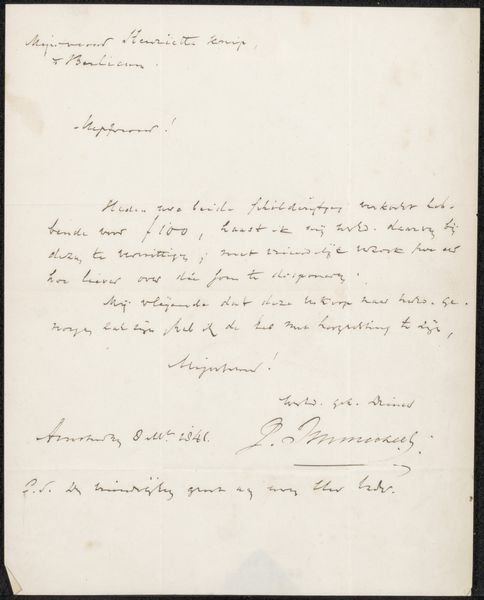 Mejufvrouw Henriette Knip,
te Berlicum.
Mejufvrouw!
Heden uwe beide schilderijtjes verkocht heb-
bende voor f 100, haast ik mij UwEd. daarvan bij
deze te verwittigen; met vriendelijk verzoek hoe eer
hoe liever over die som te disponeren.
Mij vleijende dat deze verkoop naar UwEd. ge-
noegen zal zijn heb ik de eer met hoogachting te zijn,
Mejufvrouw!
UwEd. geh. Dienaar
Amsterdam 8 1841.
P. S. De vriendelijke groet aan uwen Heer Vader.